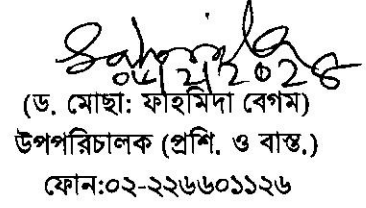 (ড. মোছা: ফাহমিদা বেগম)
উপপরিচালক (প্রশি. ও বাস্ত.)
ফোন:০২-২২৬৬০১১২৬